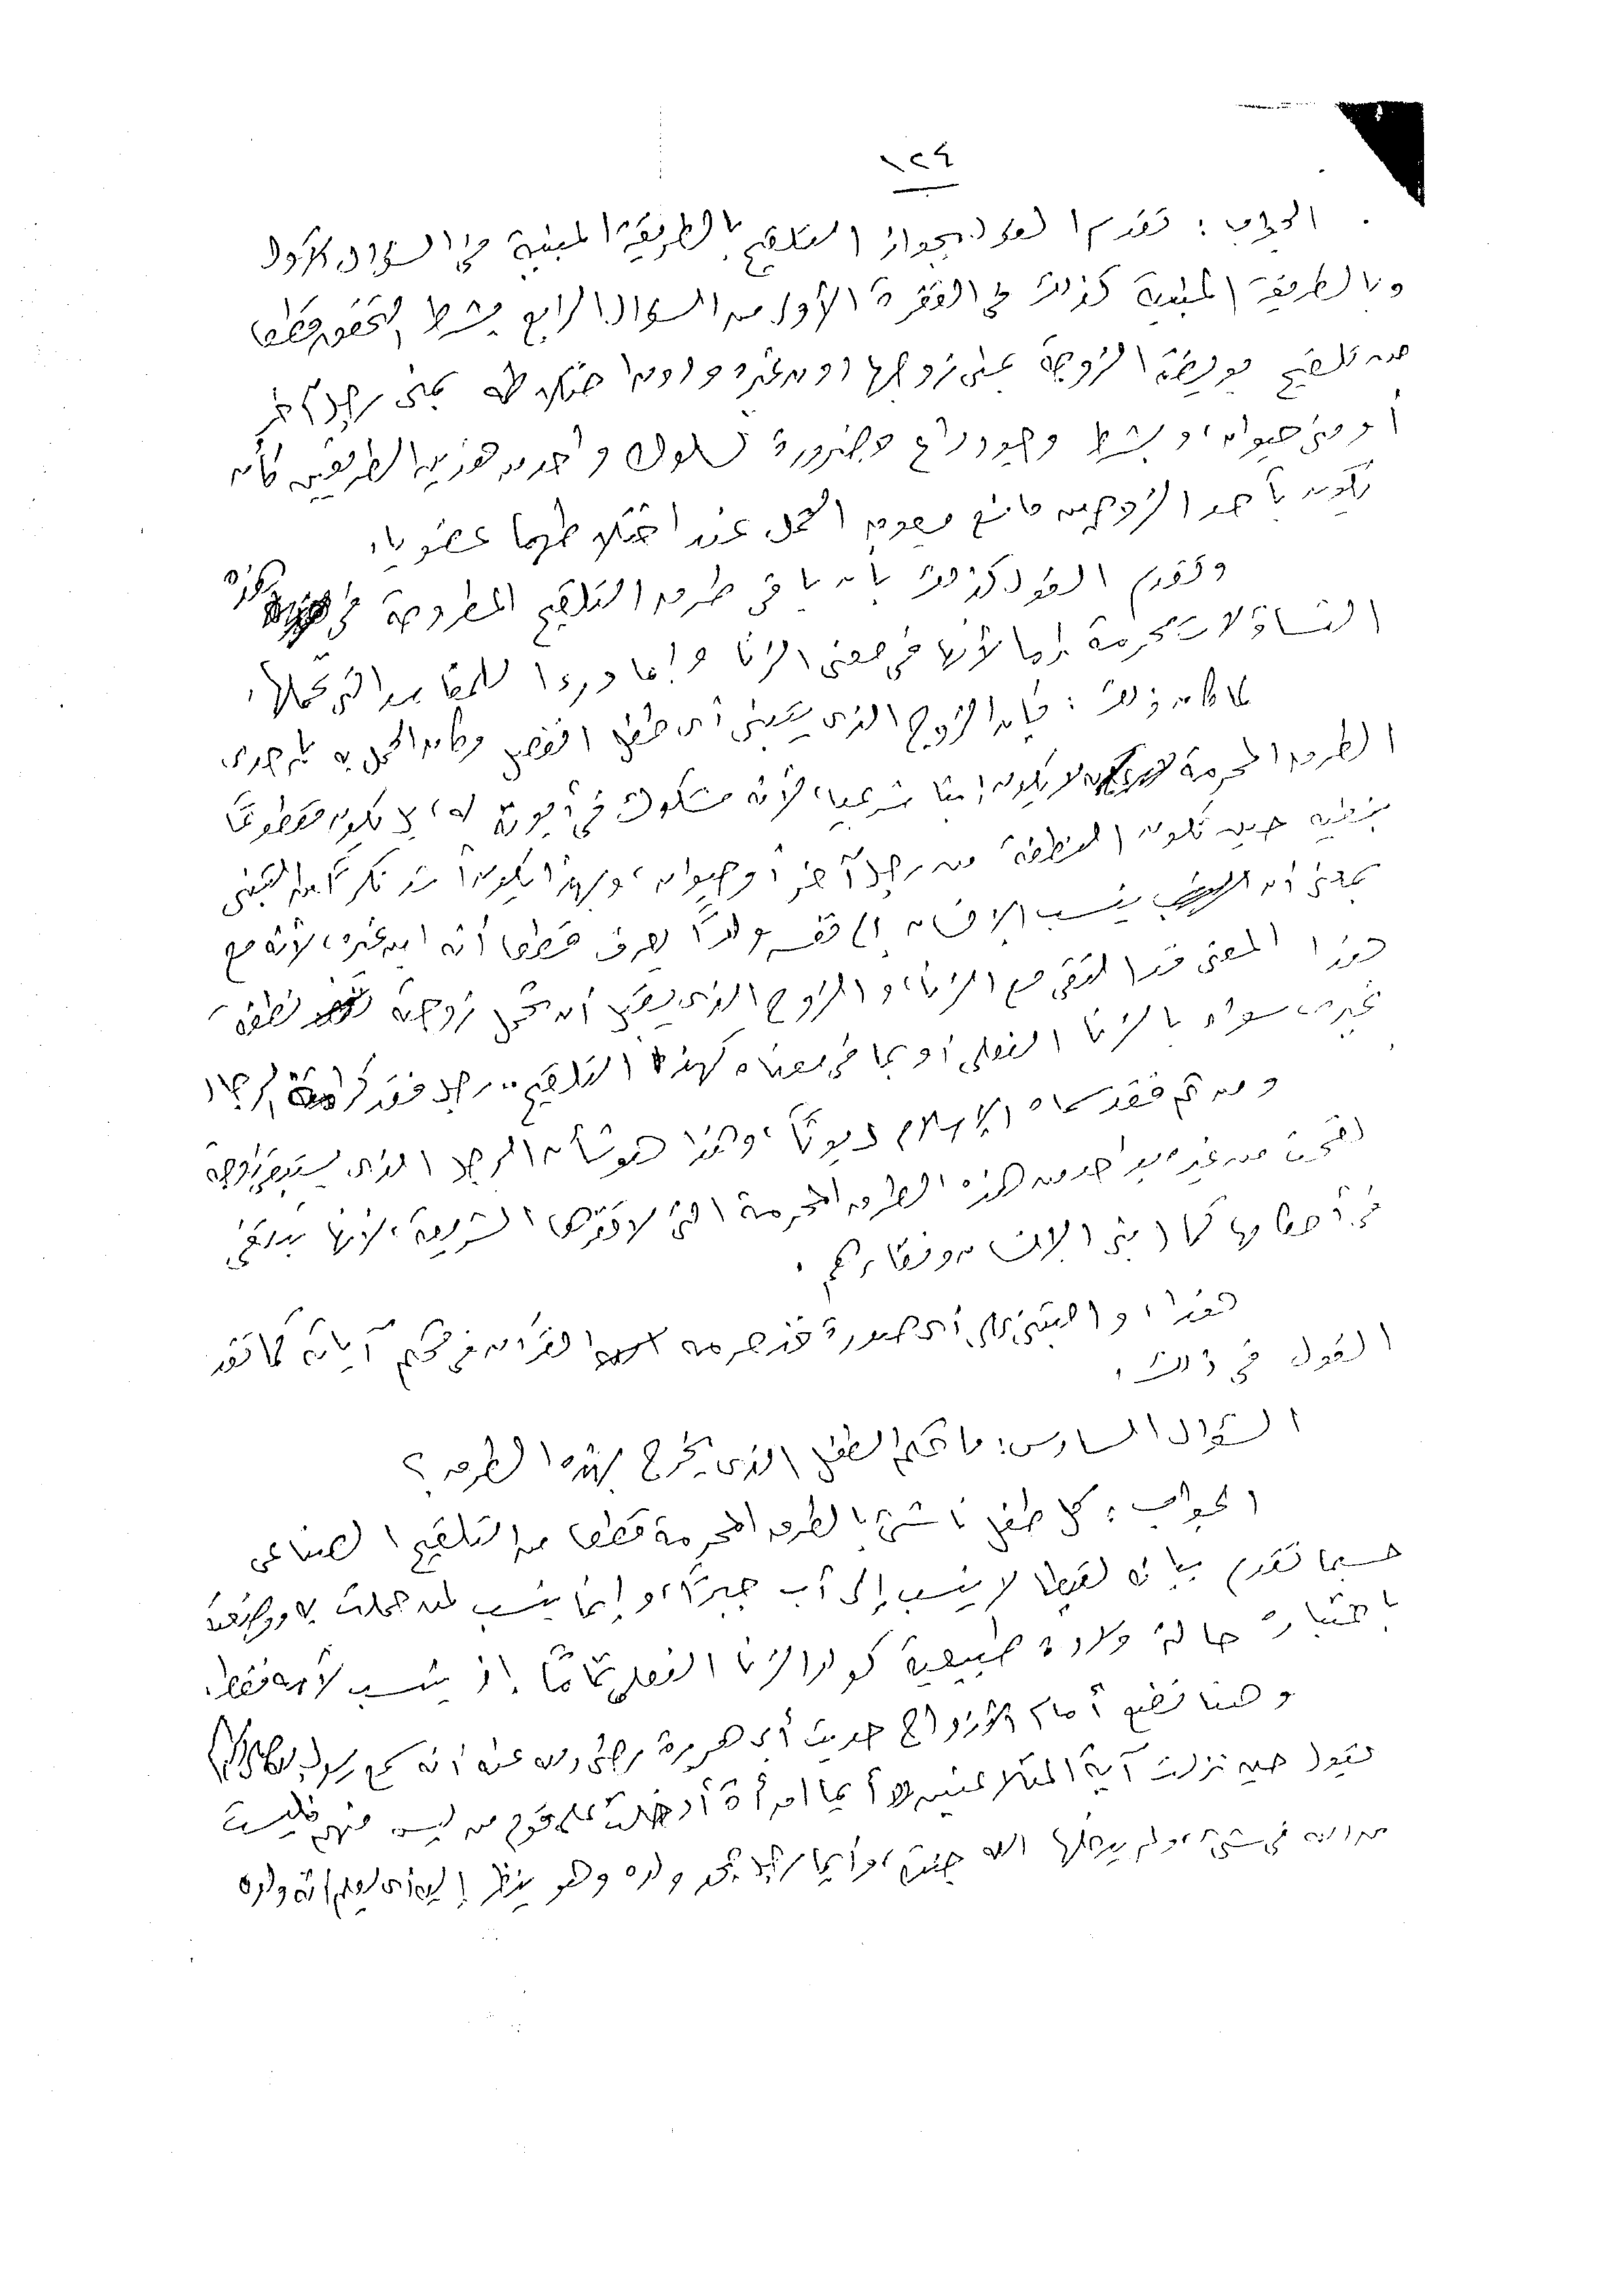 ١٢٤
الجواب : تقدم القول بجواز التلقيح بالطريقة المبينة في السؤال الأول
وبالطريقة المبينة كذلك في الفقرة الأولى من السؤال الرابع بشرط التحقق قطعا
من تلقيح بويضة الزوجة بمنى زوجها دون غيره ودون اختلاطه بمنى رجل آخر
أو منى حيوان، وبشرط وجود داع وضرورة لسلوك واحد من هذين الطريقين كأن
يكون بأحد الزوجين مانع يعوق الحمل عند اختلاطهما عضويا،
وتقدم القول كذلك بأن باقى طرق التلقيح المطروحة في هذه
التساؤلات محرمة إما لأنها في معنى الزنا وإما درءا للمفاسد التى تحملها،
لما كان ذلك : فإن الزوج الذى يتبنى أى طفل انفصل وكان الحمل به بإحدى
الطرق المحرمة لا يكون ابنا شرعيا، لأنه مشكوك في أبوته له، بل يكون مقطوعًا
بنفيه حين تكون النطفة من رجل آخر أو حيوان، وبهذا يكون أشد نكرًا من التبنى
بمعنى أن ينسب الإنسان إلى نفسه ولدًا يعرف قطعا أنه ابن غيره، لأنه مع
هذا المعنى قد التقى مع الزنا، والزوج الذى يقبل أن تحمل زوجته نطفة
غيره سواء بالزنا الفعلى أو بما في معناه كهذا التلقيح .. رجل فقد كرامة الرجال
ومن ثم فقد سماه الإسلام ديوثًا، وهذا هو شأن الرجل الذى يستبقى زوجة
لقحت من غيره بواحد من هذه الطرق المحرمة التى لا تقرها الشريعة، لأنها تبتغى
في أحكامها كمال بنى الإنسان ونقاءهم .
هذا، والتبنى في أى صورة قد حرمه القرآن في محكم آياته كما تقدم
القول في ذلك .
السؤال السادس : ما حكم الطفل الذى يخرج بهذه الطرق ؟
الجواب : كل طفل ناشئ بالطرق المحرمة قطعا من التلقيح الصناعى
حسبما تقدم بيانه لقيطا لا ينسب إلى أب جبرًا، وإنما ينسب لمن حملت به ووضعته
باعتباره حالة ولادة طبيعية كولد الزنا الفعلى تمامًا، إذ ينسب لأمه فقط .
وهنا نضع أمام الأزواج حديث أبى هريرة رضى الله عنه أنه سمع رسول الله
يقول حين نزلت آية المتلاعنين أيما امرأة أدخلت على قوم من ليس منهم فليست
من الله في شئ، ولم يدخلها الله جنته، وأيما رجل جحد ولده وهو ينظر إليه أى يعلم أنه ولده